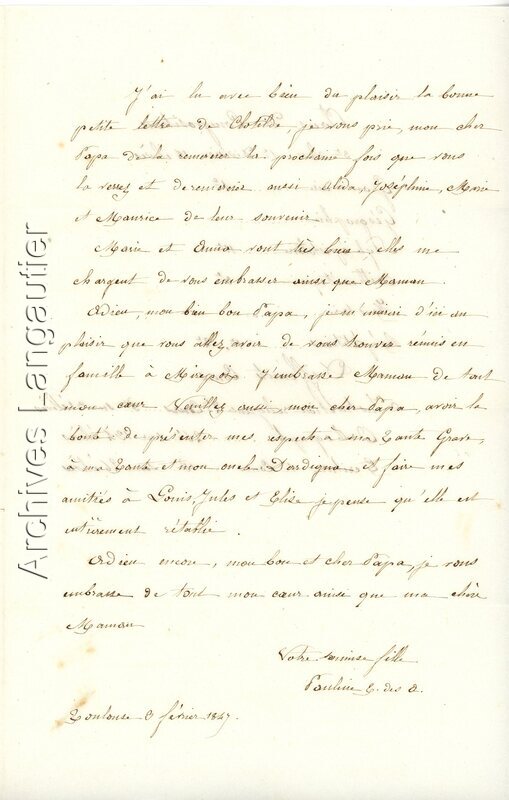 J'ai lu avec bien du plaisir la bonne
petite lettre de Clotilde, je vous prie, mon cher
Papa de la remercier la prochaine fois que vous
la verrez et de remercier aussi Alida, Joséphine, Marie
et Maurice de leur souvenir
Marie et Anna vont très bien elles me
chargent de vous embrasser ainsi que Maman.
Adieu, mon bien bon Papa, je m'unirai d'ici au
plaisir que vous allez avoir de vous trouver réunis en
famille à Mirepoix J'embrasse Maman de tout
mon cœur Veuillez aussi mon cher Papa, avoir la
bonté de présenter mes respects à ma Tante Grave,
à ma Tante et mon oncle Dardigna et faire mes
amitiés à Louis, Jules et Elise je pense qu'elle est
entièrement rétablie.
Adieu encore, mon bon et cher Papa, je vous
embrasse de tout mon cœur ainsi que ma chère
Maman
Votre soumise fille
Pauline des
Toulouse février 1847.
Archives Langautier